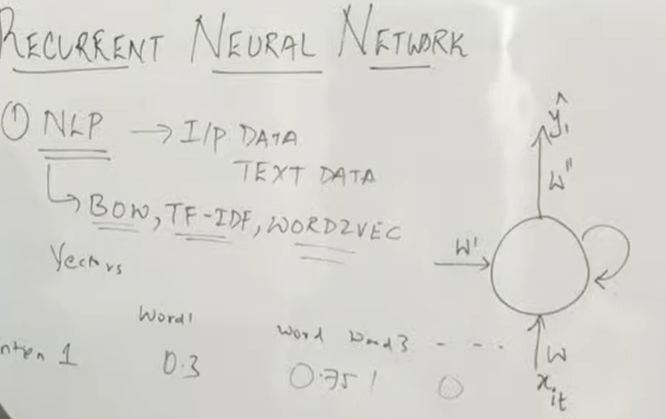 RECURRENT NEURAL NETWORK
① NLP → I/P DATA
TEXT DATA
BOW, TF-IDF, WORD2VEC
Vectors
Word1 Word Word3 - - - -
1 0.3 0.75 1 0
ŷ₁
W''
W'
W
xᵢₜ